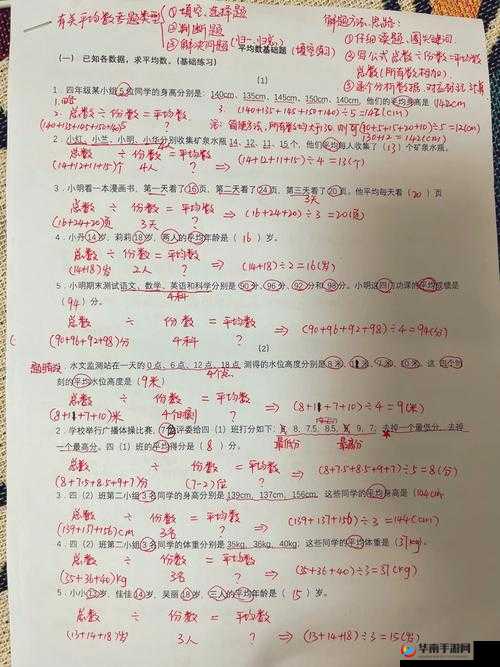 有关平均数专题类型 ① 填空、选择题
② 判断题
③ 解决问题(归一、归总)
解题方法、思路：
① 仔细读题、圈关键词
② 写公式 总数÷份数=平均数
总数(所有数相加)
③ 逐个分析数据，对应列式计算
平均数基础题(填空练习)
(一) 已知各数据，求平均数。(基础练习)
(1)
1. 四年级某小组5位同学的身高分别是：140cm、135cm、145cm、150cm、140cm，他们的平均身高是142cm
2. 总数 ÷ 份数 = 平均数
3. (140+135+145+150+140)÷5=142(cm)
2. 小红、小兰、小明、小华分别收集矿泉水瓶 14、12、11、15个，他们平均每人收集了(13)个矿泉水瓶。
总数 ÷ 份数 = 平均数
(14+12+11+15)个 4人 ? ⇒ (14+12+11+15)÷4=13(个)
3. 小明看一本漫画书，第一天看了16页、第二天看了24页，第三天看了20页，他平均每天看(20)页
3天
总数 ÷ 份数 = 平均数
(16+24+20)页 3天 ? ⇒ (16+24+20)÷3=20(页)
4. 小丹14岁，莉莉18岁，两人的平均年龄是(16)岁。
总数 ÷ 份数 = 平均数
(14+18)岁 2人 ? ⇒ (14+18)÷2=16(岁)
5. 小明期末测试语文、数学、英语和科学分别是90分、96分、92分和98分。小明这四门功课的平均成绩是
(94)分。 4科
总数 ÷ 份数 = 平均数
(90+96+92+98)分 4科 ? ⇒ (90+96+92+98)÷4=94(分)
(2)
水文监测站在一天的0点、6点、12点、18点测得的水位高度分别是8米、11米、7米、10米。这四个时
刻的平均水位高度是(9米)
总数 ÷ 份数 = 平均数
(8+11+7+10)米 4个时刻 ? ⇒ (8+11+7+10)÷4=9(米)
2. 学校举行广播体操比赛，7位评委给四(1)班打分如下：8、7.5、8.5、9、7。去掉一个最低分、去掉
一个最高分。四(1)班的平均得分是(8)分。 最低分 最高分
总数 ÷ 份数 = 平均数
(8+7.5+8.5+9+7)分 (7-2)位 ? ⇒ (8+7.5+8.5+9+7)÷5=8(分)
3. 四(2)班第二小组3名同学的身高分别是139cm、137cm、156cm。这些同学的平均身高是(144cm)
总数 ÷ 份数 = 平均数
(139+137+156)cm 3名 ? ⇒ (139+137+156)÷3=144(cm)
4. 四(2)班第二小组3名同学的体重分别是35kg、36kg、40kg。这些同学的平均体重是(37kg)
总数 ÷ 份数 = 平均数
(35+36+40)kg 3名 ? ⇒ (35+36+40)÷3=37(kg)
5. 小小13岁，佳佳14岁，吴丽18岁，三人的平均年龄是(15)岁。
总数 ÷ 份数 = 平均数
(13+14+18)岁 3人 ? ⇒ (13+14+18)÷3=15(岁)
华南手游网